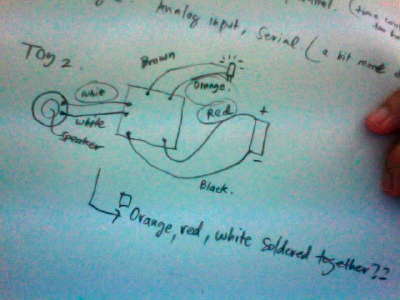 Analog input, Serial (a bit more
Toy 2.
Brown
Orange.
White
Red
+
white
speaker
-
Black.
Orange, red, white soldered together??